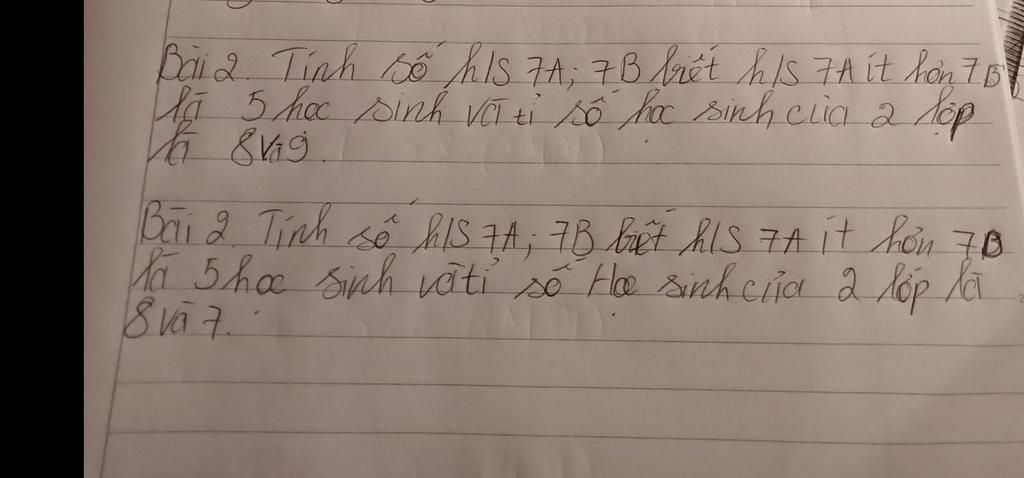 Bài 2. Tính số h/S 7A; 7B biết h/S 7A ít hơn 7B
là 5 học sinh và tỉ số học sinh của 2 lớp
là 8 và 9.
Bài 2. Tính số h/S 7A; 7B biết h/S 7A ít hơn 7B
là 5 học sinh và tỉ số Học sinh của 2 lớp là
8 và 7.